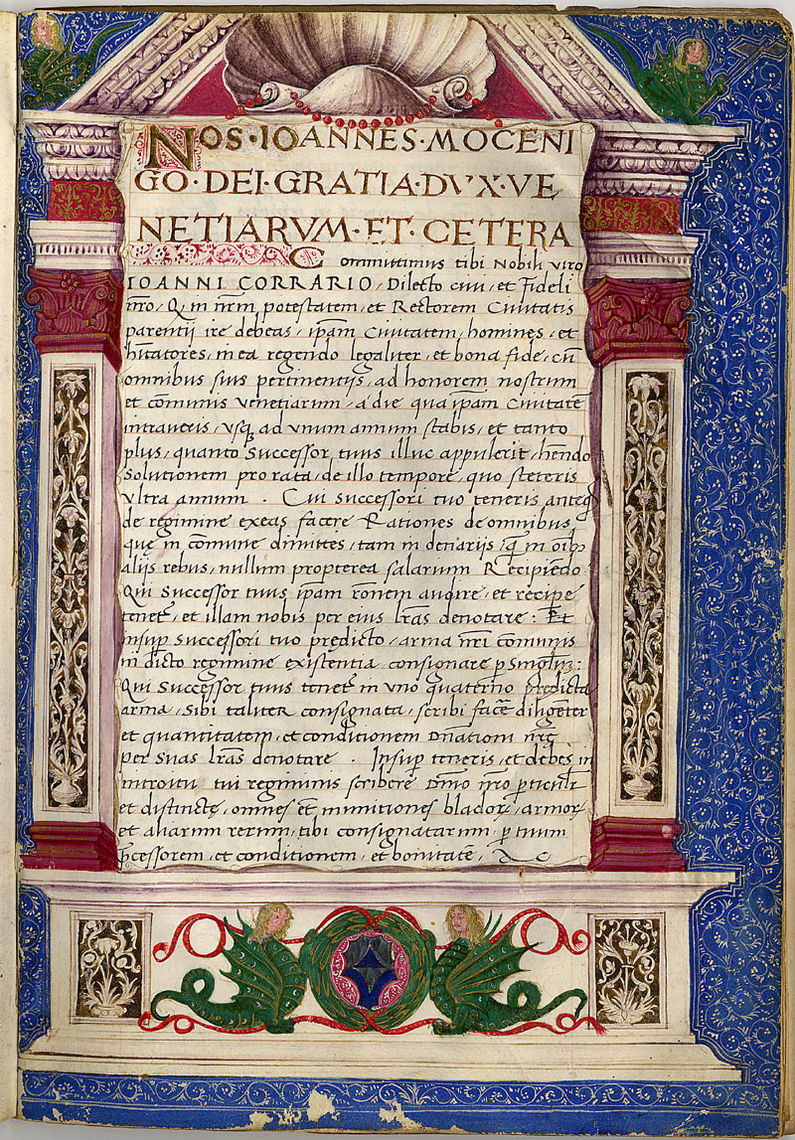 NOS·IOANNES·MOCENI
GO·DEI·GRATIA·DVX·VE
NETIARVM·ET·CETERA
Committimus tibi Nobili viro
IOANNI CORRARIO, Dilecto civi, et Fideli
nr̄o, Q, in nr̄m potestatem, et Rectorem Civitatis
parentii ire debeas, ip̄am Civitatem, homines, et
hītatores, in ea regendo legaliter, et bona fide, cū
omnibus suis pertinentijs, ad honorem nostrum
et cōmunis venetiarum, a die qua ip̄am Civitatē
intraveris, usq, ad vnum annum stabis, et tanto
plus, quanto Successor tuus illuc appulerit, hēndo
Solutionem pro rata, de illo tempore, quo steteris
vltra annum. Cui successori tuo teneris anteq̄
de regimine exeas facere Rationes de omnibus,
quę in cōmune dimittes, tam in denarijs, q̄ in oīb,
alijs rebus, nullum propterea salarium Recipiēdo.
Qui Successor tuus ip̄am rōnem audire, et recipe
tenet, et illam nobis per eius lr̄as denotare: Et
insup Successori tuo predicto, arma nr̄i cōmunis
in dicto regimine existentia consignare p singlm:
Qui Successor tuus tenet in uno quaterno predicta
arma, sibi taliter consignata, scribi facē diligēter
et quantitatem, et conditionem Dn̄ationi nr̄ę
per suas lr̄as denotare. Insup teneris, et debes in
introitu tui regiminis scribere Dn̄io nr̄o pticulr
et distinctę, omnes et munitiones bladoꝝ, armoꝝ
et aliarum rerum, tibi consignatarum, p tuum
p̄cessorem, et conditionem, et bonitatē,